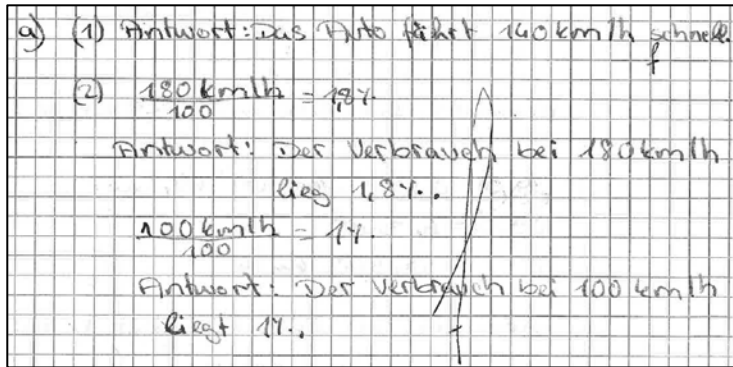 a) (1) Antwort: Das Auto fährt 140 km/h schnell.
f
(2) 180 km/h / 100 = 1,8%.
Antwort: Der Verbrauch bei 180 km/h
lieg 1,8%.
100 km/h / 100 = 1%.
Antwort: Der Verbrauch bei 100 km/h
liegt 1%.
f